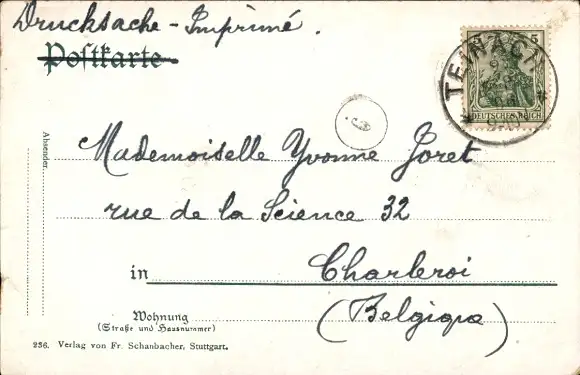 Drucksache - Imprimé.
Postkarte
5
TEINACH
DEUTSCHES REICH
Absender.
Mademoiselle Yvonne Joret
rue de la Science 32
in Charleroi
(Belgiqa)
Wohnung
(Straße und Hausnummer)
236. Verlag von Fr. Schanbacher, Stuttgart.